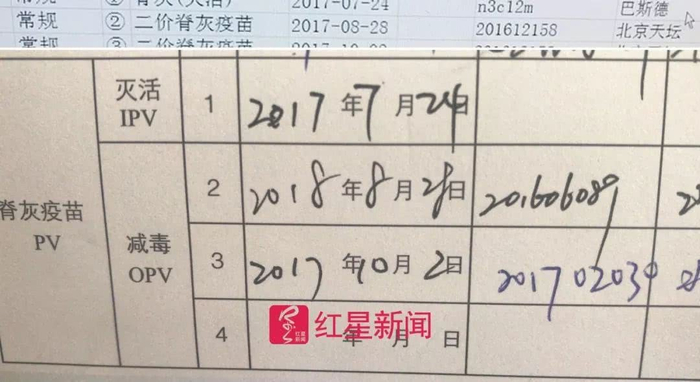 常规 ① 脊灰(灭活) 2017-07-24 n3c12m 巴斯德
常规 ② 二价脊灰疫苗 2017-08-28 201612158 北京天坛
常规 ③ 二价脊灰疫苗
脊灰疫苗 PV
灭活 IPV
1 2017年7月24日
减毒 OPV
2 2018年8月28日 201606089
3 2017年10月2日 20170203
4 年 月 日
红星新闻
红星新闻